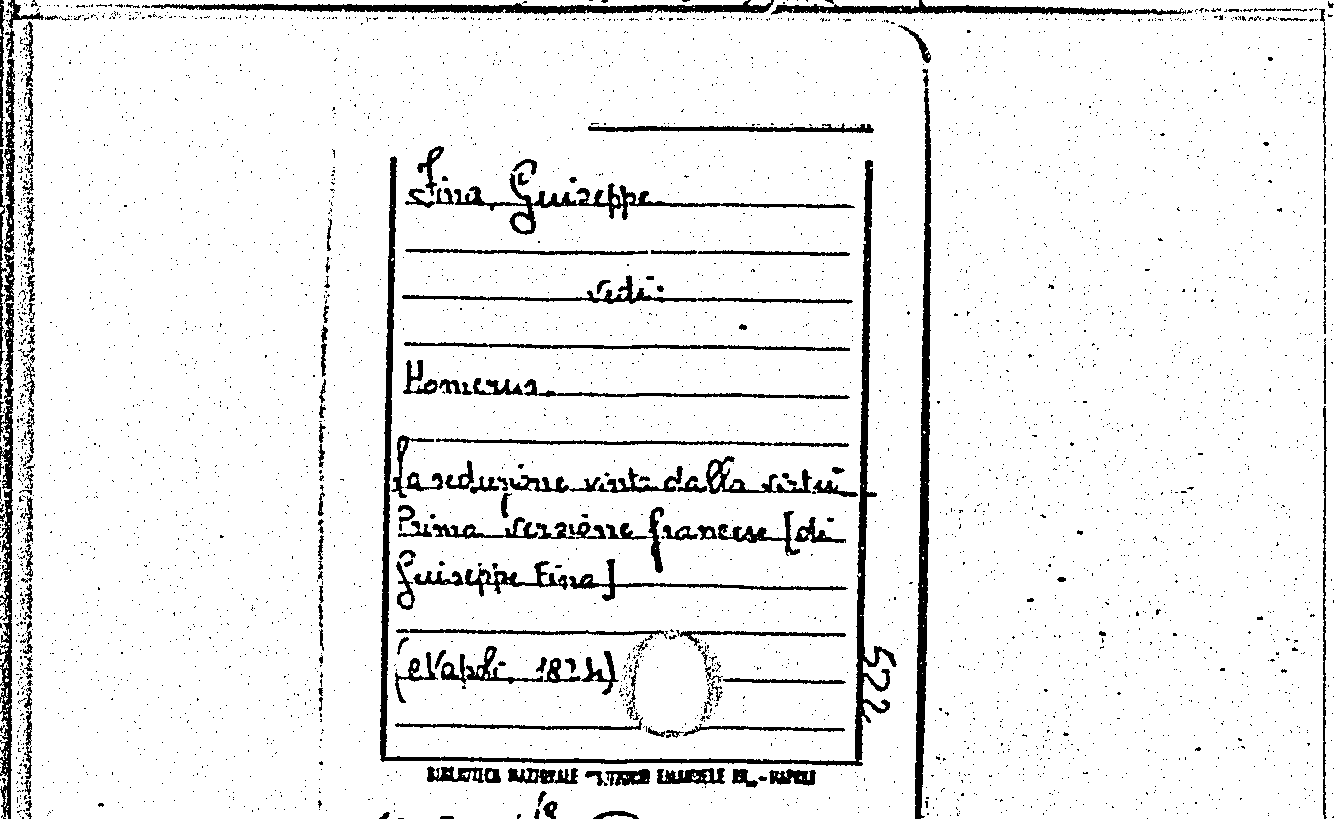 Fina, Giuseppe
vedi:
Homerus.
La seduzione vinta dalla virtù
Prima versione francese [di
Giuseppe Fina]
(Napoli, 1824)
522
BIBLIOTECA NAZIONALE VITTORIO EMANUELE III - NAPOLI